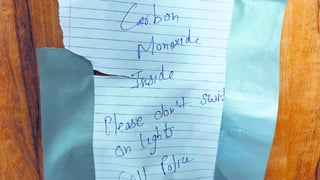 Carbon
Monoxide
Inside
Please don't
on lights
Call Police